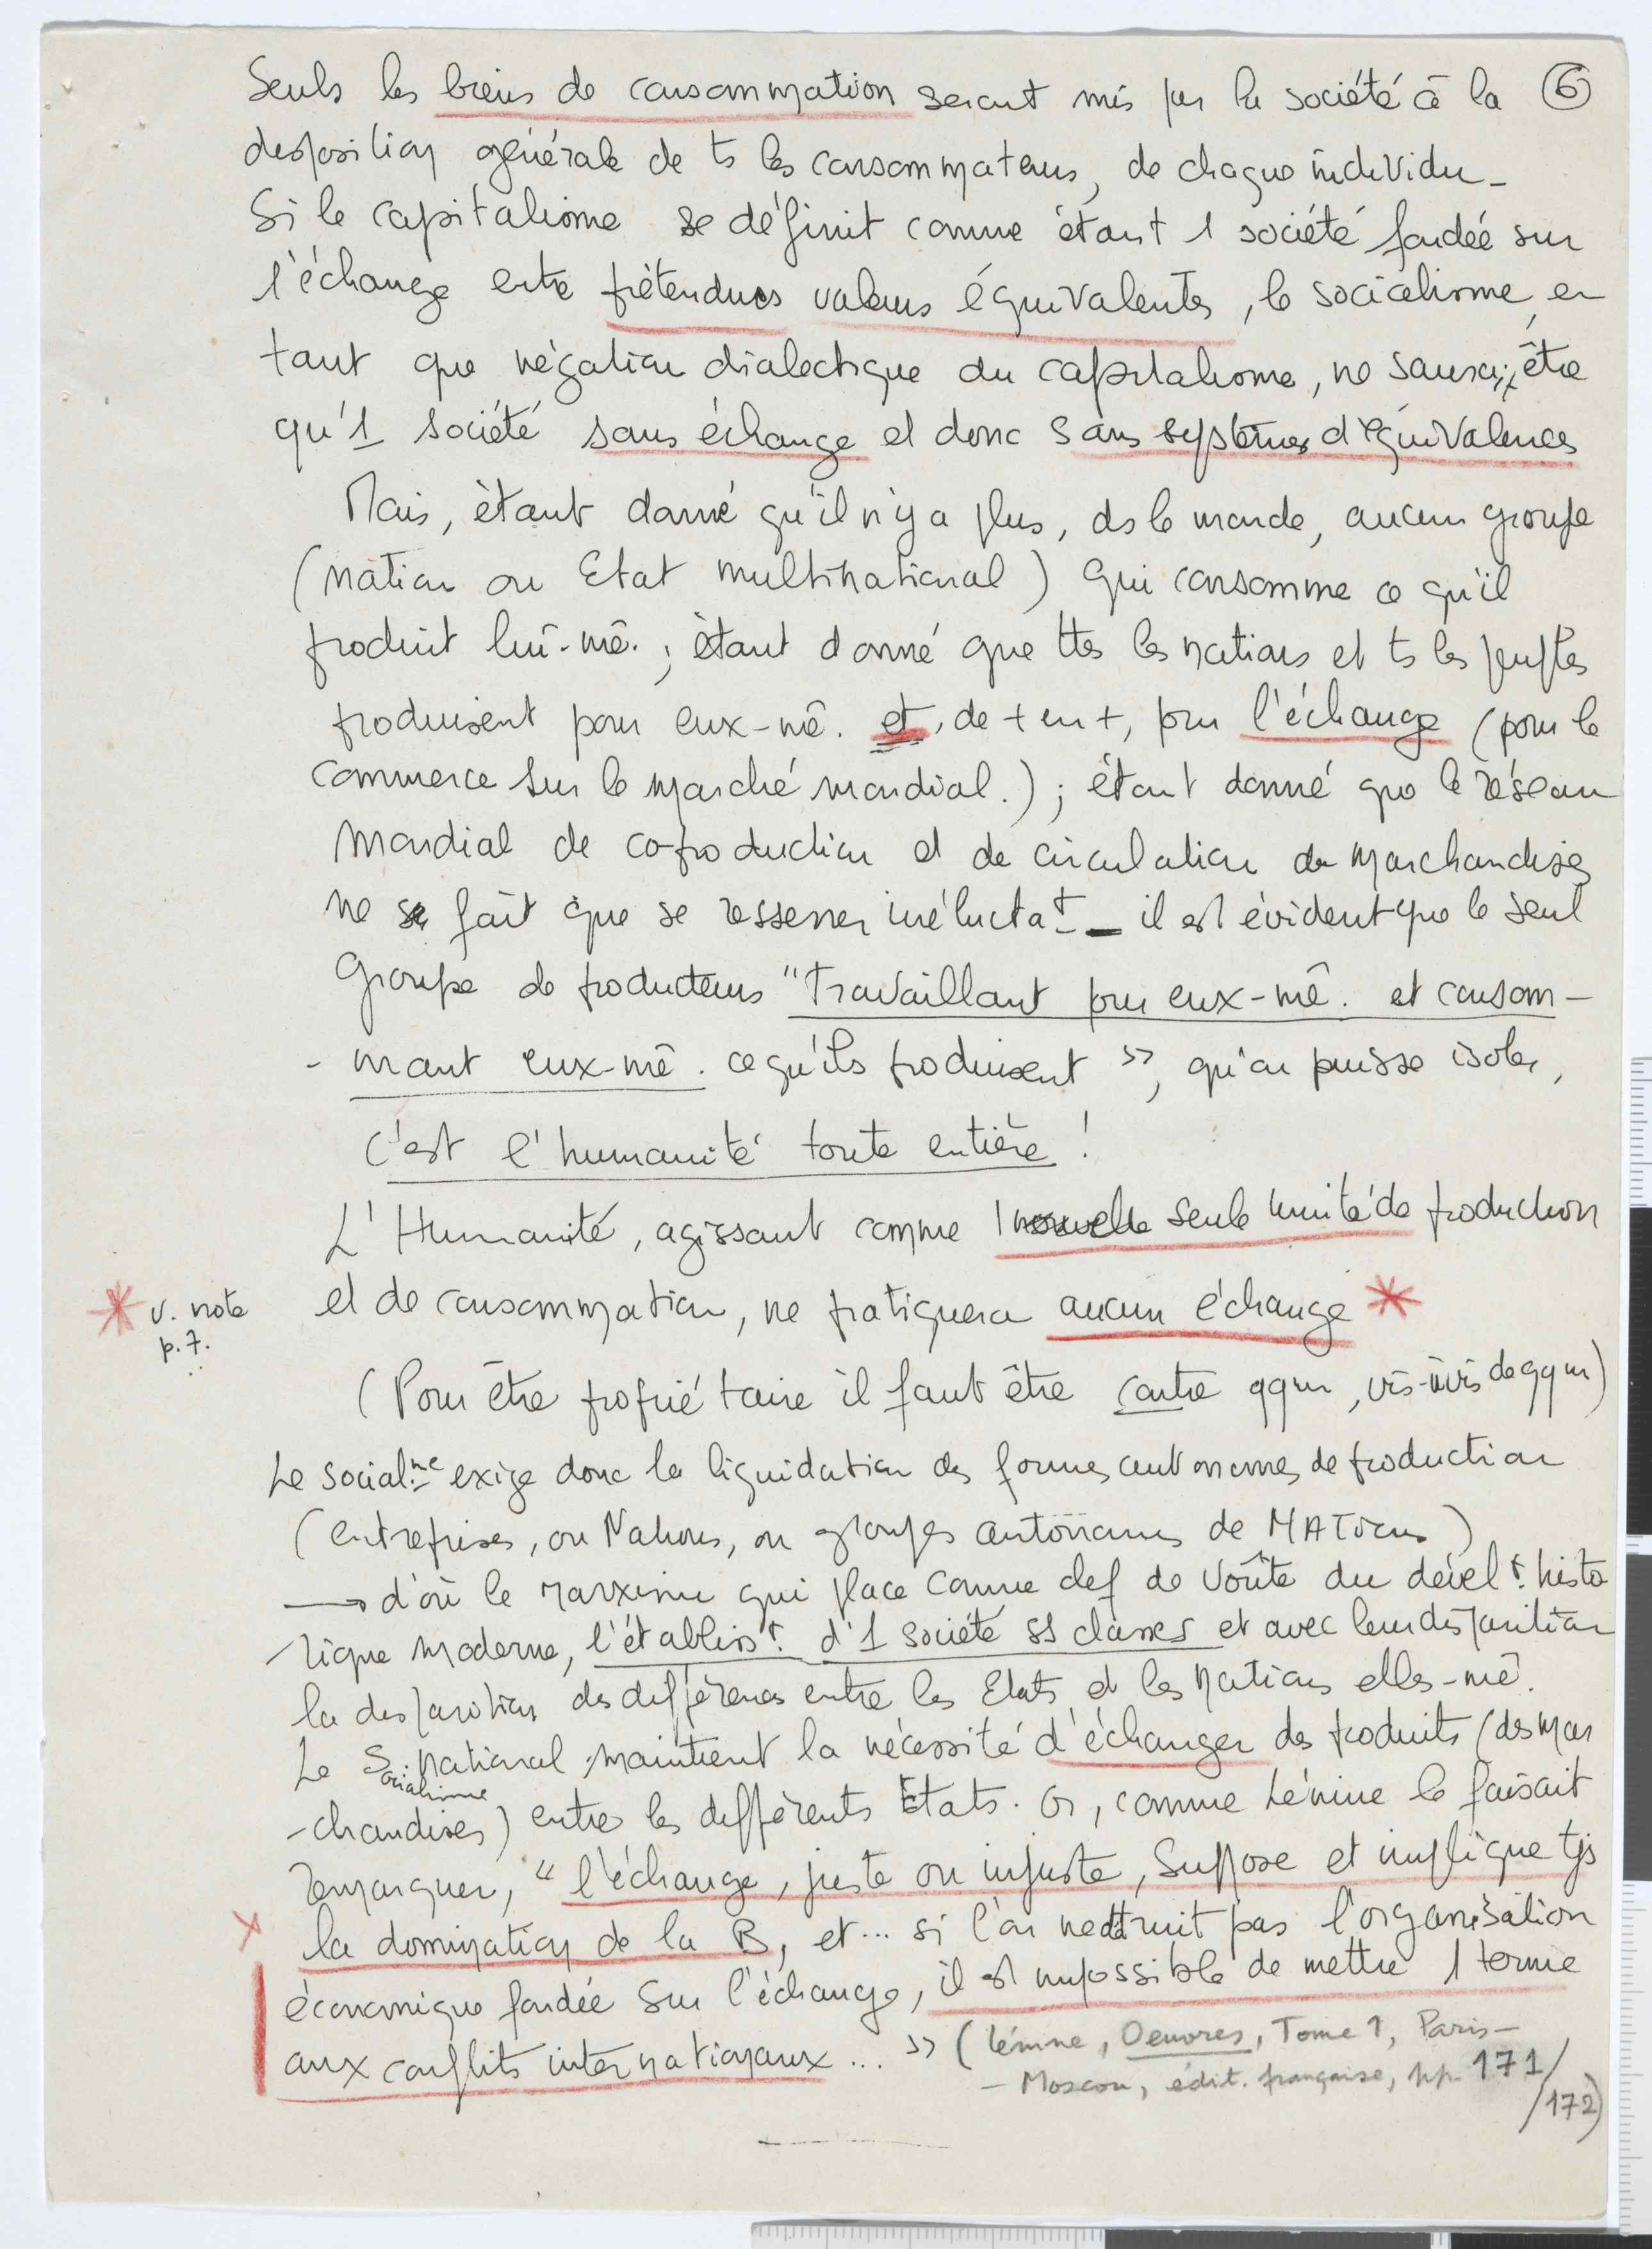 Seuls les biens de consommation seront mis par la société à la ⑥
disposition générale de ts les consommateurs, de chaque individu -
Si le capitalisme se définit comme étant 1 société fondée sur
l'échange entre prétendues valeurs équivalentes, le socialisme, en
tant que négation dialectique du capitalisme, ne saurait être
qu'1 société sans échange et donc sans systèmes d'équivalences
Mais, étant donné qu'il n'y a plus, ds le monde, aucun groupe
(nation ou Etat multinational) qui consomme ce qu'il
produit lui-mê. ; étant donné que ttes les nations et ts les peuples
produisent pour eux-mê. et, de + en +, pour l'échange (pour le
commerce sur le marché mondial.) ; étant donné que le réseau
mondial de co-production et de circulation de marchandises
ne fait que se resserrer inélucta^t _ il est évident que le seul
groupe de producteurs "Travaillant pour eux-mê. et consom-
-mant eux-mê. ce qu'ils produisent", qu'on puisse isoler,
c'est l'humanité toute entière !
L'Humanité, agissant comme 1 seule unité de production
et de consommation, ne pratiquera aucun échange *
* v. note
p. 7.
(Pour être propriétaire il faut être contre qqun, vis-à-vis de qqun)
Le social^me exige donc la liquidation des formes autonomes de production
(entreprises, ou Nations, ou groupes autonomes de NATions)
→ d'où le marxisme qui place comme clef de voûte du dével^t. histo
-rique moderne, l'établiss^t. d'1 société ss classes et avec leur disparition
la disparition des différences entre les Etats et les Nations elles-mê.
Le Socialisme national maintient la nécessité d'échanger des produits (des mar
-chandises) entre les différents Etats. Or, comme Lénine le faisait
remarquer, "l'échange, juste ou injuste, suppose et implique tjs
la domination de la B, et... si l'on ne détruit pas l'organisation
économique fondée sur l'échange, il est impossible de mettre 1 terme
aux conflits internationaux..." (Lénine, Oeuvres, Tome 1, Paris -
- Moscou, édit. française, pp. 171/
/172)